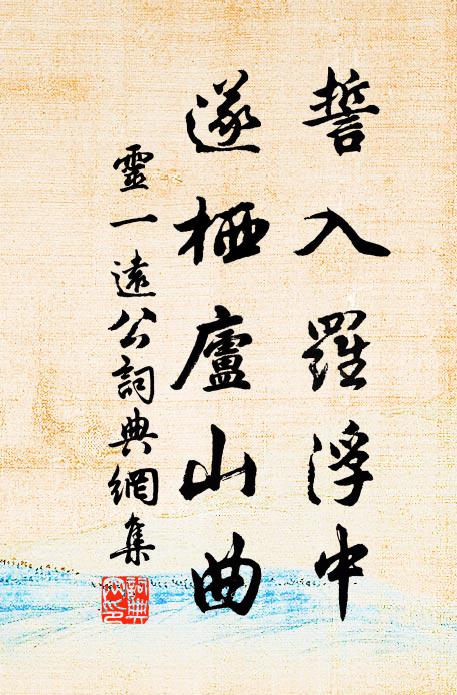 誓入羅浮中
遂栖廬山曲
靈一遠公詞典網集